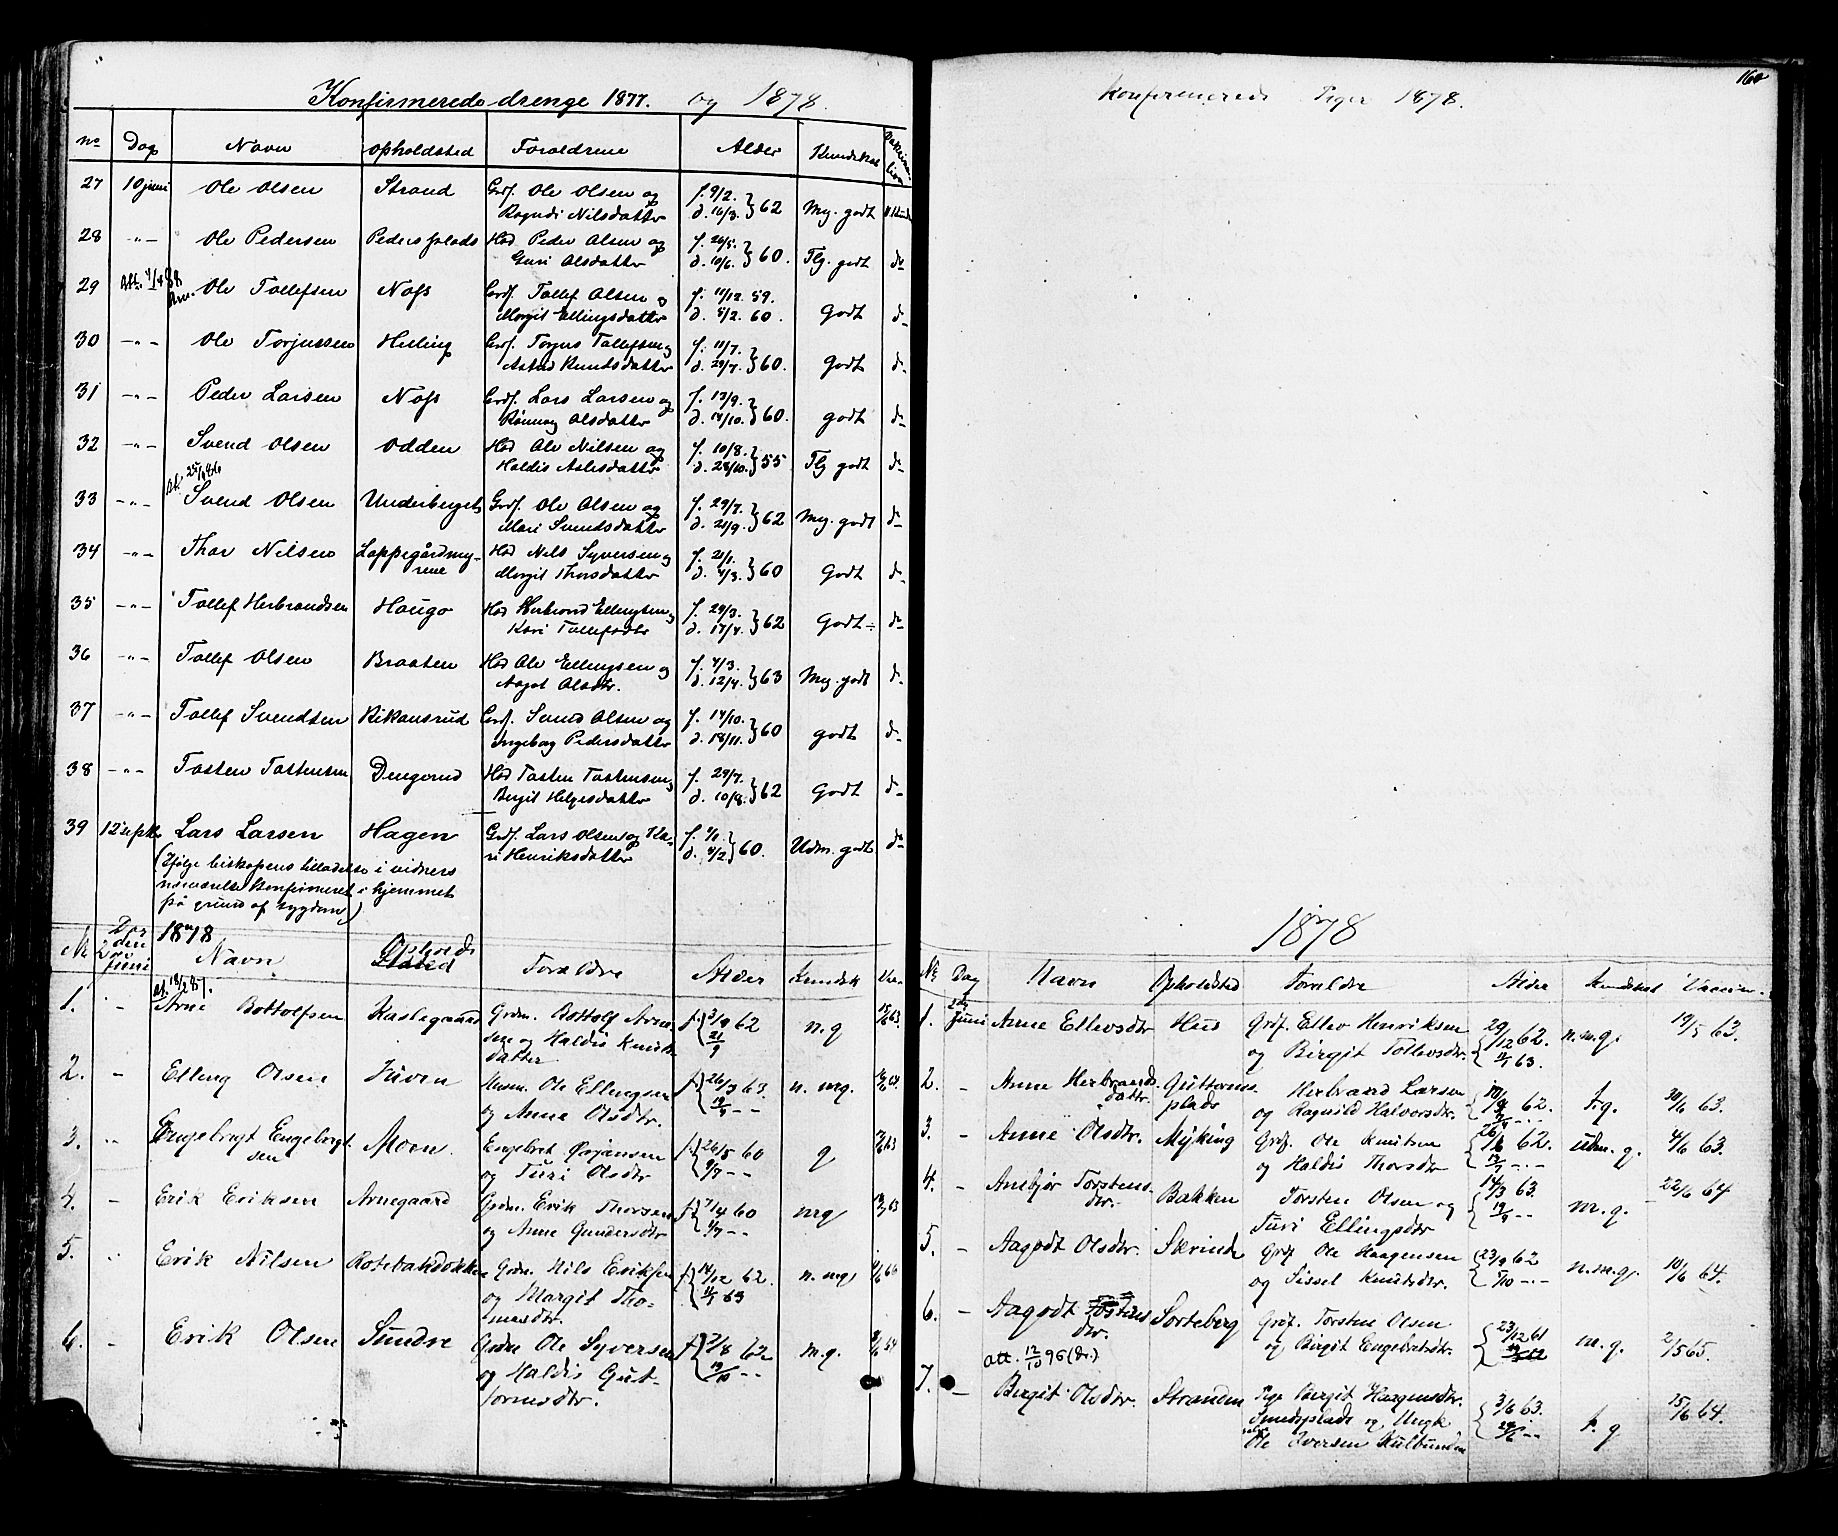 Konfirmerede drenge 1877. og 1878.
no Dag Navn Opholdsted Forældrene Alder Kundskab
27 10 juni Ole Olsen Strand Grdf. Ole Olsen og f. 9/2. } 62 Mg. godt
Ragndi Nilsdatter d. 16/3.
28 -"- Ole Pedersen Pedersplads Hsd Peder Olsen og f. 26/5. } 60. Tlg. godt do
Guri Olsdatter d. 10/6.
29 Att. Ole Tollefsen Næss Grdf. Tollef Olsen og f. 11/12. 59. Godt do
Margit Ellingsdatter d. 5/2. 60.
30 -"- Ole Torjussen Helling Grdf. Torjus Tollefsen og f. 11/7. } 60. Godt do
Astrid Knudsdatter d. 29/7.
31 -"- Peder Larsen Næss Grdf. Lars Larsen og f. 13/9. } 60. godt do
Rønnog Olsdatter d. 14/10.
32 -"- Svend Olsen Odden Hsd Ole Nilsen og f. 10/8. } 55 Tlg godt do
Haldis Aslesdatter d. 28/10.
33 -"- Svend Olsen Underberget Grdf. Ole Olsen og f. 29/7. } 62 Mg. godt do
Mari Svendsdatter d. 21/9.
34 -"- Thor Nilsen Loppegårdmy- Hsd Nils Syversen og f. 21/1. } 60 Godt do
rene Margit Thorsdatter d. 4/3.
35 -"- Tollef Herbrandsen Haugo Hsd Herbrand Ellingsen og f. 24/3. } 62 Godt do
Kari Tollefsdtr d. 17/4.
36 -"- Tollef Olsen Braaten Hsd Ole Ellingsen og f. 4/3. } 63 Mg. godt do
Aagot Olsdtr. d. 12/4.
37 -"- Tollef Svendsen Rikansrud Grdf. Svend Olsen og f. 14/10. } 60 godt do
Ingeborg Pedersdatter d. 18/11.
38 -"- Tosten Tostensen Dengerud Hsd Tosten Tostensen og f. 29/7. } 62 Godt do
Birgit Helgesdatter d. 10/8.
39 12 septbr Lars Larsen Hagen Grdf. Lars Olsen og Ka- f. 1/1. } 60. Udm. godt do
ri Henriksdatter d. 4/2
(Ifølge biskopens tilladelse i vidners
nærværelse konfirmeret i hjemmet
på grund af sygdom)
1878
Nr. Dag den 2den Juni Navn Opholdssted Forældre Alder Kundsk Vac.
1. - Arne Bottolfsen Kastegaard Grdm. Bottolf Arne- f. { 3/9 62 n. g
sen og Haldis Knuds- 21/9
datter
2. - Elling Olsen Juven Husm. Ole Ellingsen f. { 26/3 63 n. mg.
og Anne Olsdtr. 19/4 --
3. -"- Engebrigt Engebrigt- Moen Engebret Ørjansen f. { 26/5 60 g
sen og Turi Olsdtr. 9/7 --
4. - Erik Eriksen Arnegaard Grdm. Erik Thorsen f. { 7/4 60 mg
og Anne Gundersdtr 1/7 --
5. -"- Erik Nilsen Rotebakdokken Grdm. Nils Eriksen f. { 14/12 62. n. mg
og Margit Tho- 11/1 63
masdtr.
6. - Erik Olsen Sundre Grdm Ole Syversen f. { 2/8 62 m. g.
og Haldis Gut- 19/10 --
tormsdtr.
160
Konfirmerede Piger 1878.
1878
Nr. Dag Navn Opholdssted Forældre Alder Kundskab Vaccin.
1. 2den Juni Anne Ellevsdtr Hus Grdf. Ellev Henriksen 29/12 62. n. m. g. 19/5 63.
og Birgit Tollevsdtr. 11/1 63.
2. - Anne Herbrands- Guttorms- Herbrand Larsen 62. t. g. 30/6 63.
dattr. plads og Ragnild Halvorsdtr.
3. - Anne Olsdtr. Myking Grdf. Ole Knutsen 62. udm. g. 4/6 63.
og Haldis Thorsdtr
4. - Anbjør Torstens- Bakken Torsten Olsen og 14/3 63. m. g. 22/6 64
dtr. Turi Ellingsdtr 19/4 --
5. - Aagodt Olsdtr. Skrinde Grdf Ole Haagensen 23/9 62 n. m. g. 10/6 64.
og Sissel Knutsdtr. 5/10 -.-
6. - Aagodt Tostens- Sorteberg Grdf. Torsten Olsen 23/12 61 m. g. 2/5 65.
dtr. og Birgit Engebretsdtr.
Att. 12/10 96 (Dr.)
7. - Birgit Olsdtr. Stranden Pige Birgit Haagensdtr. 3/6 63. t. g 15/6 64.
og Ungk
Ole Iversen Kulbunden